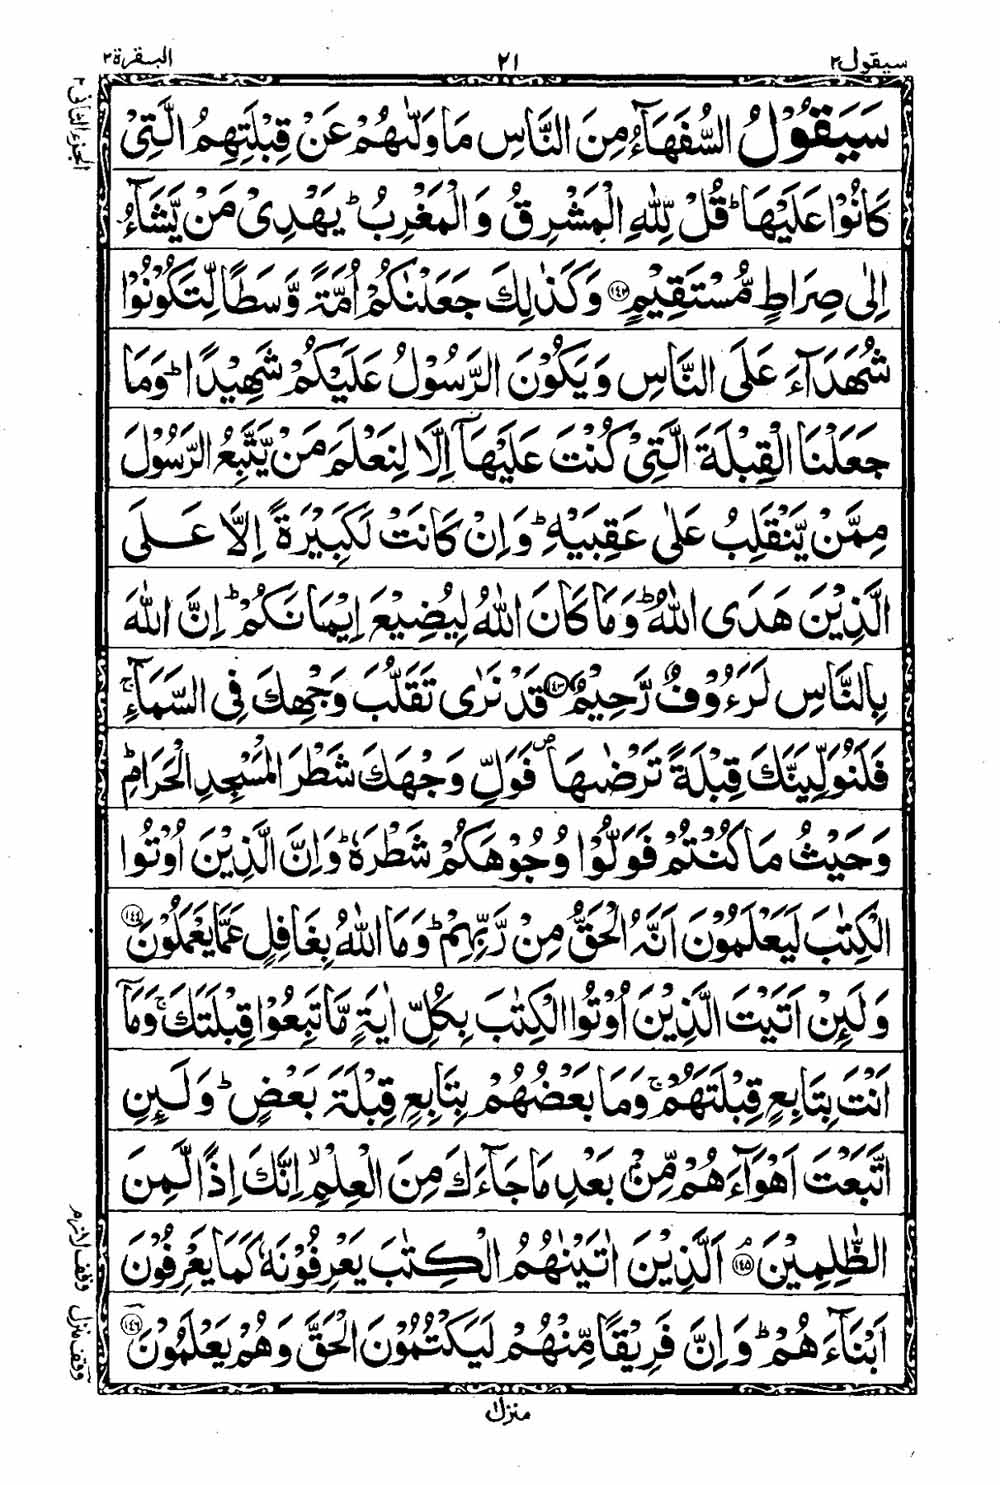 سيقول٢ ٢١ البقرة٢
الجزء الثانی ٢
سَيَقُوۡلُ السُّفَهَآءُ مِنَ النَّاسِ مَا وَلّٰٮهُمۡ عَنۡ قِبۡلَتِهِمُ الَّتِىۡ
كَانُوۡا عَلَيۡهَا ؕ قُلۡ لِّلّٰهِ الۡمَشۡرِقُ وَالۡمَغۡرِبُ ؕ يَهۡدِىۡ مَنۡ يَّشَآءُ
اِلٰى صِرَاطٍ مُّسۡتَقِيۡمٍ ﴿۱۴۲﴾ وَكَذٰلِكَ جَعَلۡنٰكُمۡ اُمَّةً وَّسَطًا لِّتَکُوۡنُوۡا
شُهَدَآءَ عَلَى النَّاسِ وَيَكُوۡنَ الرَّسُوۡلُ عَلَيۡكُمۡ شَهِيۡدًا ؕ وَمَا
جَعَلۡنَا الۡقِبۡلَةَ الَّتِىۡ كُنۡتَ عَلَيۡهَآ اِلَّا لِنَعۡلَمَ مَنۡ يَّتَّبِعُ الرَّسُوۡلَ
مِمَّنۡ يَّنۡقَلِبُ عَلٰى عَقِبَيۡهِ ؕ وَاِنۡ كَانَتۡ لَكَبِيۡرَةً اِلَّا عَلَى
الَّذِيۡنَ هَدَى اللّٰهُ ؕ وَمَا كَانَ اللّٰهُ لِيُضِيۡعَ اِيۡمَانَكُمۡ ؕ اِنَّ اللّٰهَ
بِالنَّاسِ لَرَءُوۡفٌ رَّحِيۡمٌ ﴿۱۴۳﴾ قَدۡ نَرٰى تَقَلُّبَ وَجۡهِكَ فِى السَّمَآءِ ۚ
فَلَنُوَلِّيَنَّكَ قِبۡلَةً تَرۡضٰٮهَا ۖ فَوَلِّ وَجۡهَكَ شَطۡرَ الۡمَسۡجِدِ الۡحَرَامِ ؕ
وَحَيۡثُ مَا كُنۡتُمۡ فَوَلُّوۡا وُجُوۡهَكُمۡ شَطۡرَهٗ ؕ وَاِنَّ الَّذِيۡنَ اُوۡتُوا
الۡكِتٰبَ لَيَعۡلَمُوۡنَ اَنَّهُ الۡحَقُّ مِنۡ رَّبِّهِمۡ ؕ وَمَا اللّٰهُ بِغَافِلٍ عَمَّا يَعۡمَلُوۡنَ ﴿۱۴۴﴾
وَلَئِنۡ اَتَيۡتَ الَّذِيۡنَ اُوۡتُوا الۡكِتٰبَ بِكُلِّ اٰيَةٍ مَّا تَبِعُوۡا قِبۡلَتَكَ ۚ وَمَآ
اَنۡتَ بِتَابِعٍ قِبۡلَتَهُمۡ ۚ وَمَا بَعۡضُهُمۡ بِتَابِعٍ قِبۡلَةَ بَعۡضٍ ؕ وَلَئِنِ
اتَّبَعۡتَ اَهۡوَآءَهُمۡ مِّنۡۢ بَعۡدِ مَا جَآءَكَ مِنَ الۡعِلۡمِ ۙ اِنَّكَ اِذًا لَّمِنَ
الظّٰلِمِيۡنَ ﴿۱۴۵﴾ ۘ اَلَّذِيۡنَ اٰتَيۡنٰهُمُ الۡكِتٰبَ يَعۡرِفُوۡنَهٗ كَمَا يَعۡرِفُوۡنَ
اَبۡنَآءَهُمۡ ؕ وَاِنَّ فَرِيۡقًا مِّنۡهُمۡ لَيَكۡتُمُوۡنَ الۡحَقَّ وَهُمۡ يَعۡلَمُوۡنَ ﴿۱۴۶﴾
وقف لازم
وقف منزل
منزل ۱